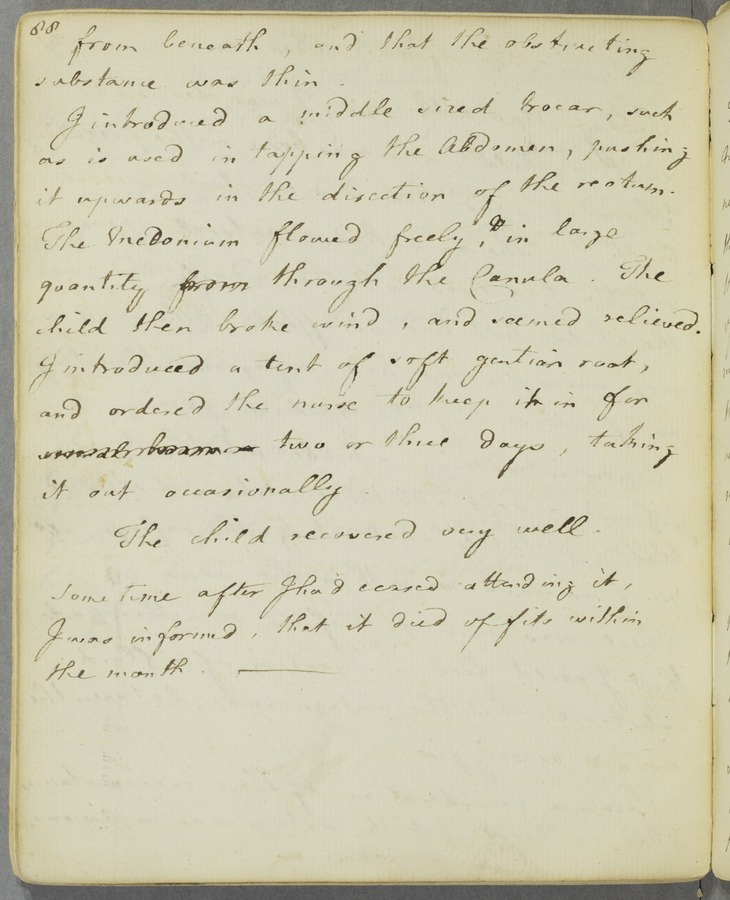 88
from beneath, and that the obstructing
substance was thin.
I introduced a middle sized trocar, such
as is used in tapping the Abdomen, pushing
it upwards in the direction of the rectum.
The Meconium flowed freely, & in large
quantity from through the Canula. The
child then broke wind, and seemed relieved.
I introduced a tent of soft gentian root,
and ordered the nurse to keep it in for
two or three days, taking
it out occasionally.
The child recovered very well.
Some time after I had ceased attending it,
I was informed, that it died of fits within
the month.